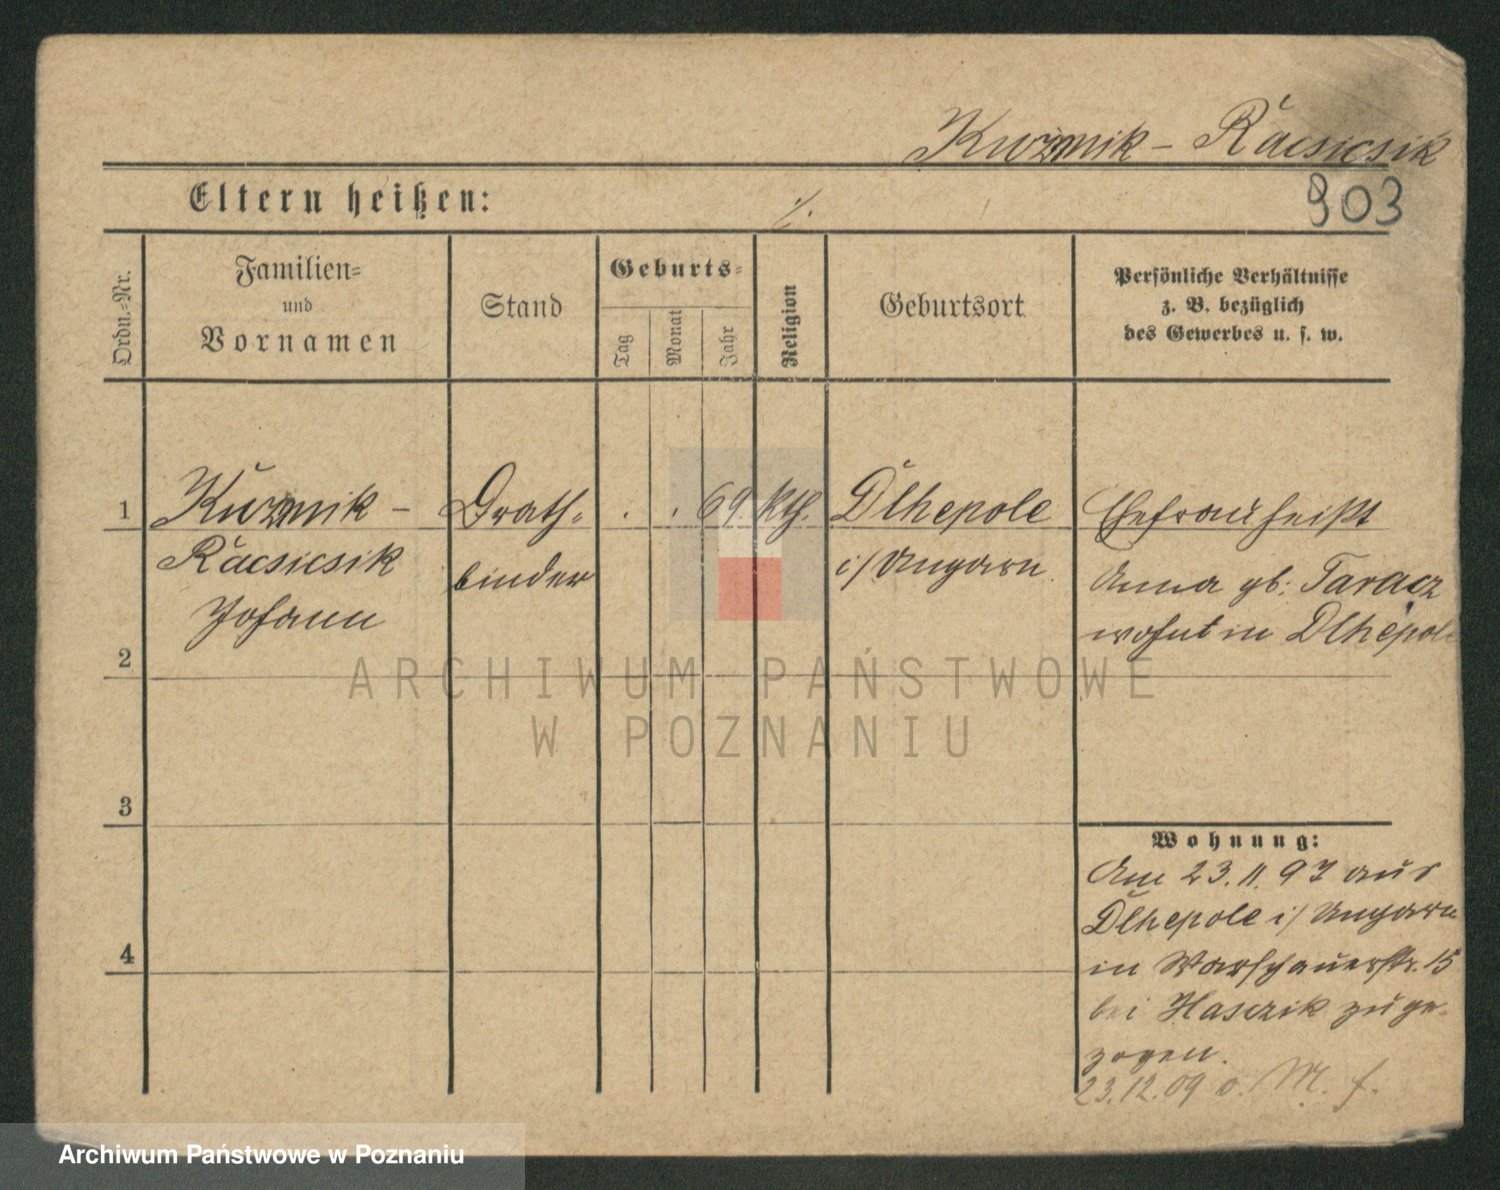 Kuzmik - Račsicsik
Eltern heißen: ·/.
903
Ordn.-Nr.
Familien-
und
Vornamen
Stand
Geburts-
Tag
Monat
Jahr
Religion
Geburtsort
Persönliche Verhältnisse
z. B. bezüglich
des Gewerbes u. s. w.
1 Kuzmik - Drath- . . 69 kth. Dlhepole Ehefrau heißt
Račsicsik binder i/ Ungarn Anna gb: Taracz
Johann wohnt in Dlhepole
2
ARCHIWUM PAŃSTWOWE
W POZNANIU
3
Wohnung:
Am 23.11.97 aus
Dlhepole i/ Ungarn
4 in Warschauerstr. 15
bei Hasczik zuge-
zogen.
23.12.09 o. M. f.
Archiwum Państwowe w Poznaniu